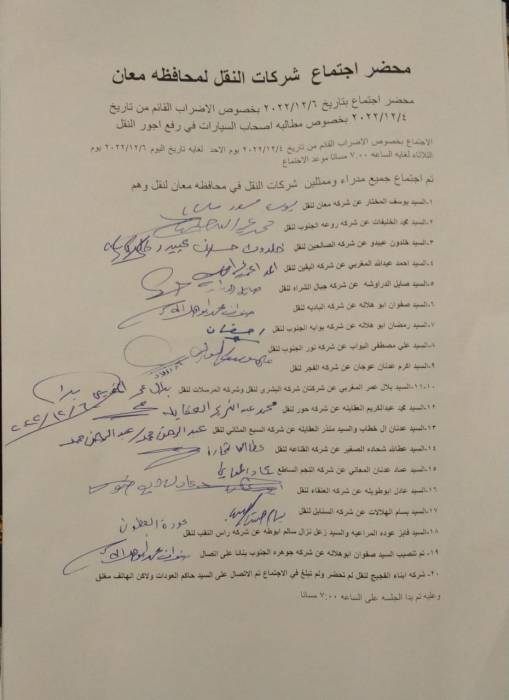 محضر اجتماع شركات النقل لمحافظه معان
محضر اجتماع بتاريخ ٢٠٢٢/١٢/٦ بخصوص الاضراب القائم من تاريخ
٢٠٢٢/١٢/٤ بخصوص مطالبه اصحاب السيارات في رفع اجور النقل
الاجتماع بخصوص الاضراب القائم من تاريخ ٢٠٢٢/١٢/٤ يوم الاحد لغايه تاريخ اليوم ٢٠٢٢/١٢/٦ يوم
الثلاثاء لغايه الساعه ٧:٠٠ مسائا موعد الاجتماع
تم اجتماع جميع مدراء وممثلين شركات النقل في محافظه معان لنقل وهم
١-السيد يوسف المختار عن شركه معان لنقل
٢-السيد محمد الخليفات عن شركه روعه الجنوب لنقل
٣-السيد خلدون عبيدو عن شركه الصالحين لنقل
٤-السيد احمد عبدالله المغربي عن شركه اليقين لنقل
٥-السيد صايل الدراوشه عن شركه جبال الشراه لنقل
٦-السيد صفوان ابو هلاله عن شركه الباديه لنقل
٧-السيد رمضان ابو هلاله عن شركه بوابه الجنوب لنقل
رمضان
٨-السيد علي مصطفى البواب عن شركه نور الجنوب لنقل
٩-السيد اكرم عدنان عوجان عن شركه الفجر لنقل
١٠-١١-السيد بلال عمر المغربي عن شركتان شركه البشرى لنقل وشركه المرسلات لنقل
بلال عمر المغربي
٢٠٢٢/١٢/٦
١٢-السيد محمد عبدالكريم العقايله عن شركه حور لنقل
محمد عبدالكريم العقايله
١٣-السيد عدنان ال خطاب والسيد منذر العقايله عن شركه السبع المثاني لنقل
عبدالرحمن حمد
١٤-السيد عطالله شحاده الصغير عن شركه القناعه لنقل
١٥-السيد عماد عدنان المعاني عن شركه النجم الساطع
١٦-السيد عادل ابوطويله عن شركه العنقاء لنقل
١٧-السيد بسام الهلالات عن شركه السنابل لنقل
١٨-السيد فايز عوده المراعيه والسيد زعل نزال سالم ابوطه عن شركه راس النقب لنقل
١٩- تم تنصيب السيد صفوان ابوهلاله عن شركه جوهره الجنوب بناء على اتصال
٢٠- شركه ابناء الفجيج لنقل لم تحضر ولم تبلغ في الاجتماع تم الاتصال على السيد حاكم العودات ولاكن الهاتف مغلق
وعليه تم بدا الجلسه على الساعه ٧:٠٠ مسائا